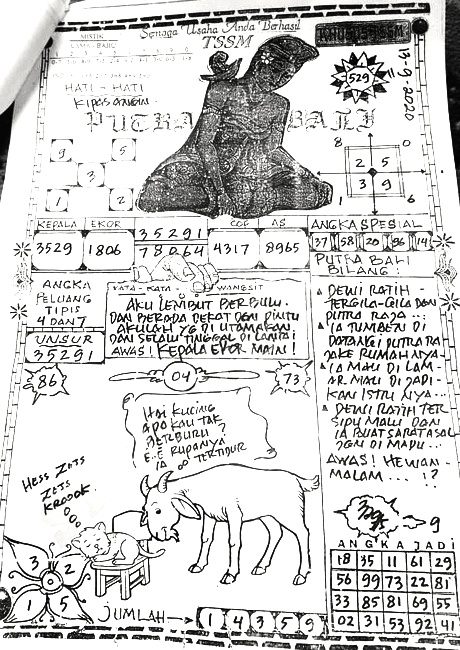 Semoga Usaha Anda Berhasil
TSSM
MISTIK
LAMA - BARU
KHUSUS TSSM
529
19-9-2020
HATI - HATI
KIPAS ANGIN -
PUTRA BALI
9 5
3
1 2
8 0
2 5
3 9
1 6
KEPALA EKOR 35291 COP AS ANGKA SPESIAL
3529 1806 78064 4317 8965 37 58 20 96 14
ANGKA
PELUANG
TIPIS
4 DAN 7
UNSUR
35291
KATA - KATA WANGSIT
AKU LEMBUT BERBULU.
DAN BERADA DEKAT DGN PINTU
AKULAH YG DI UTAMAKAN.
DAN SELALU TINGGAL DI LANTAI
AWAS! KEPALA EKOR MAIN!
PUTRA BALI
BILANG :
DEWI RATIH -
TERGILA-GILA DGN
PUTRA RAJA ...
IA TUMBEN DI
DATANGI PUTRA RA
JA KE RUMAHNYA -
IA MAU DI LAM -
AR MAU DI JADI -
KAN ISTRI NYA ...
DEWI RATIH TER
SIPU MALU DAN
IA BUAT SARAT ASAL
DGN DI MADU ...
AWAS! HEWAN -
MALAM ... !?
86
04
73
HAI KUCING
APO KAU TAK
BERBURU ?
E.E RUPANYA
IA TERTIDUR
HESS ZOTS
ZOTS
KROOK.
3 2
1 5
9
ANGKA JADI
18 35 11 61 29
56 99 73 22 81
33 85 81 69 55
02 31 53 92 41
JUMLAH → 1 4 3 5 9